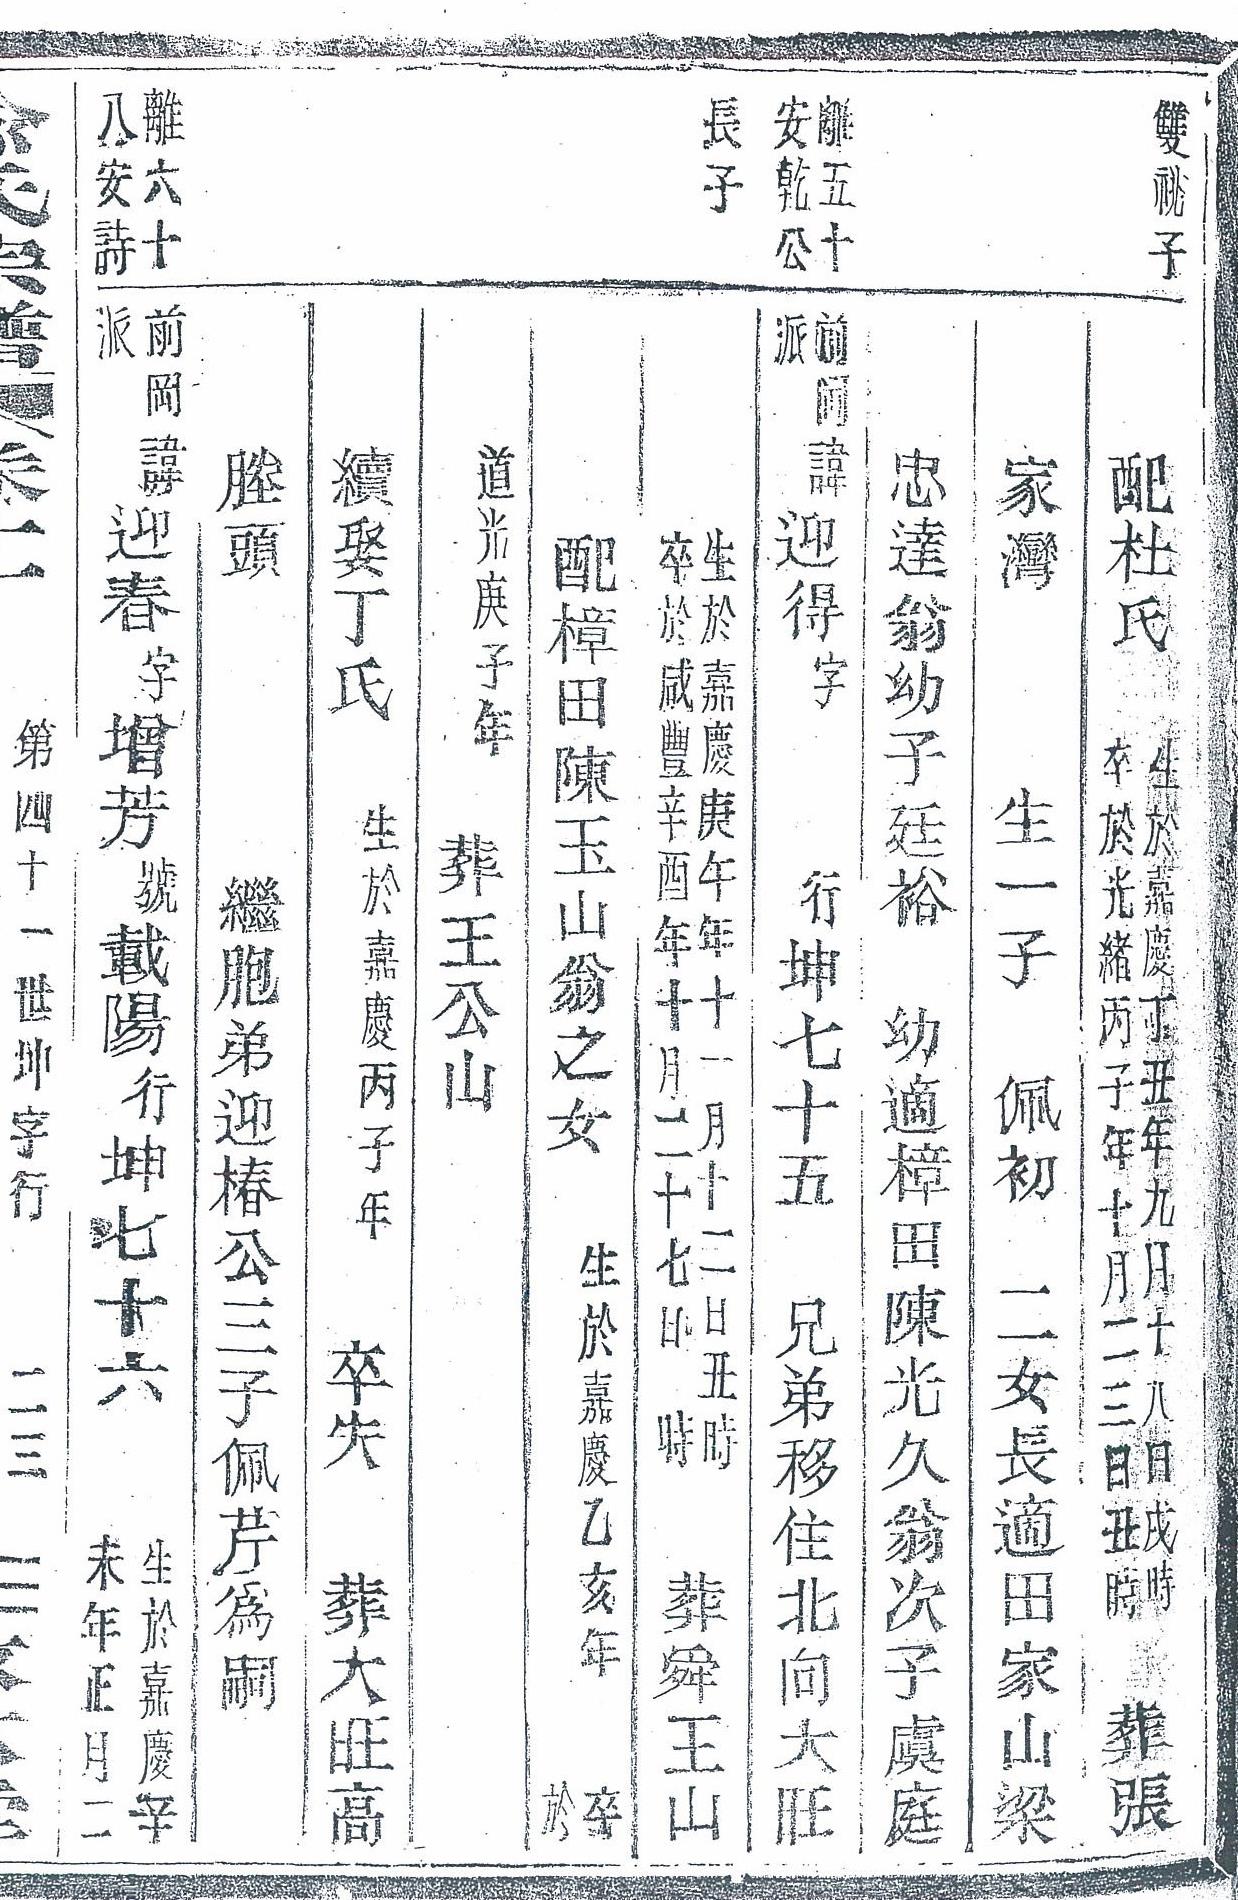 雙祧子
配杜氏
生於嘉慶丁丑年九月十八日戌時
卒於光緒丙子年十月二三日丑時
葬張
家灣 生一子 佩初 二女長適田家山梁
忠達翁幼子廷裕 幼適樟田陳光久翁次子虞庭
離五十
安乾公
長子
前岡
派
諱迎得字 行坤七十五 兄弟移住北向大旺
生於嘉慶庚午年十一月十二日丑時
卒於咸豐辛酉年十月二十七日 時
葬舜王山
配樟田陳玉山翁之女 生於嘉慶乙亥年 卒
於
道光庚子年 葬王公山
續娶丁氏 生於嘉慶丙子年 卒失 葬大旺高
塍頭 繼胞弟迎椿公三子佩芹為嗣
離六十
八安詩
前岡
派
諱迎春字增芳號載陽行坤七十六
生於嘉慶辛
未年正月二
氏宗譜 卷十一
第四十一世坤字行
二三